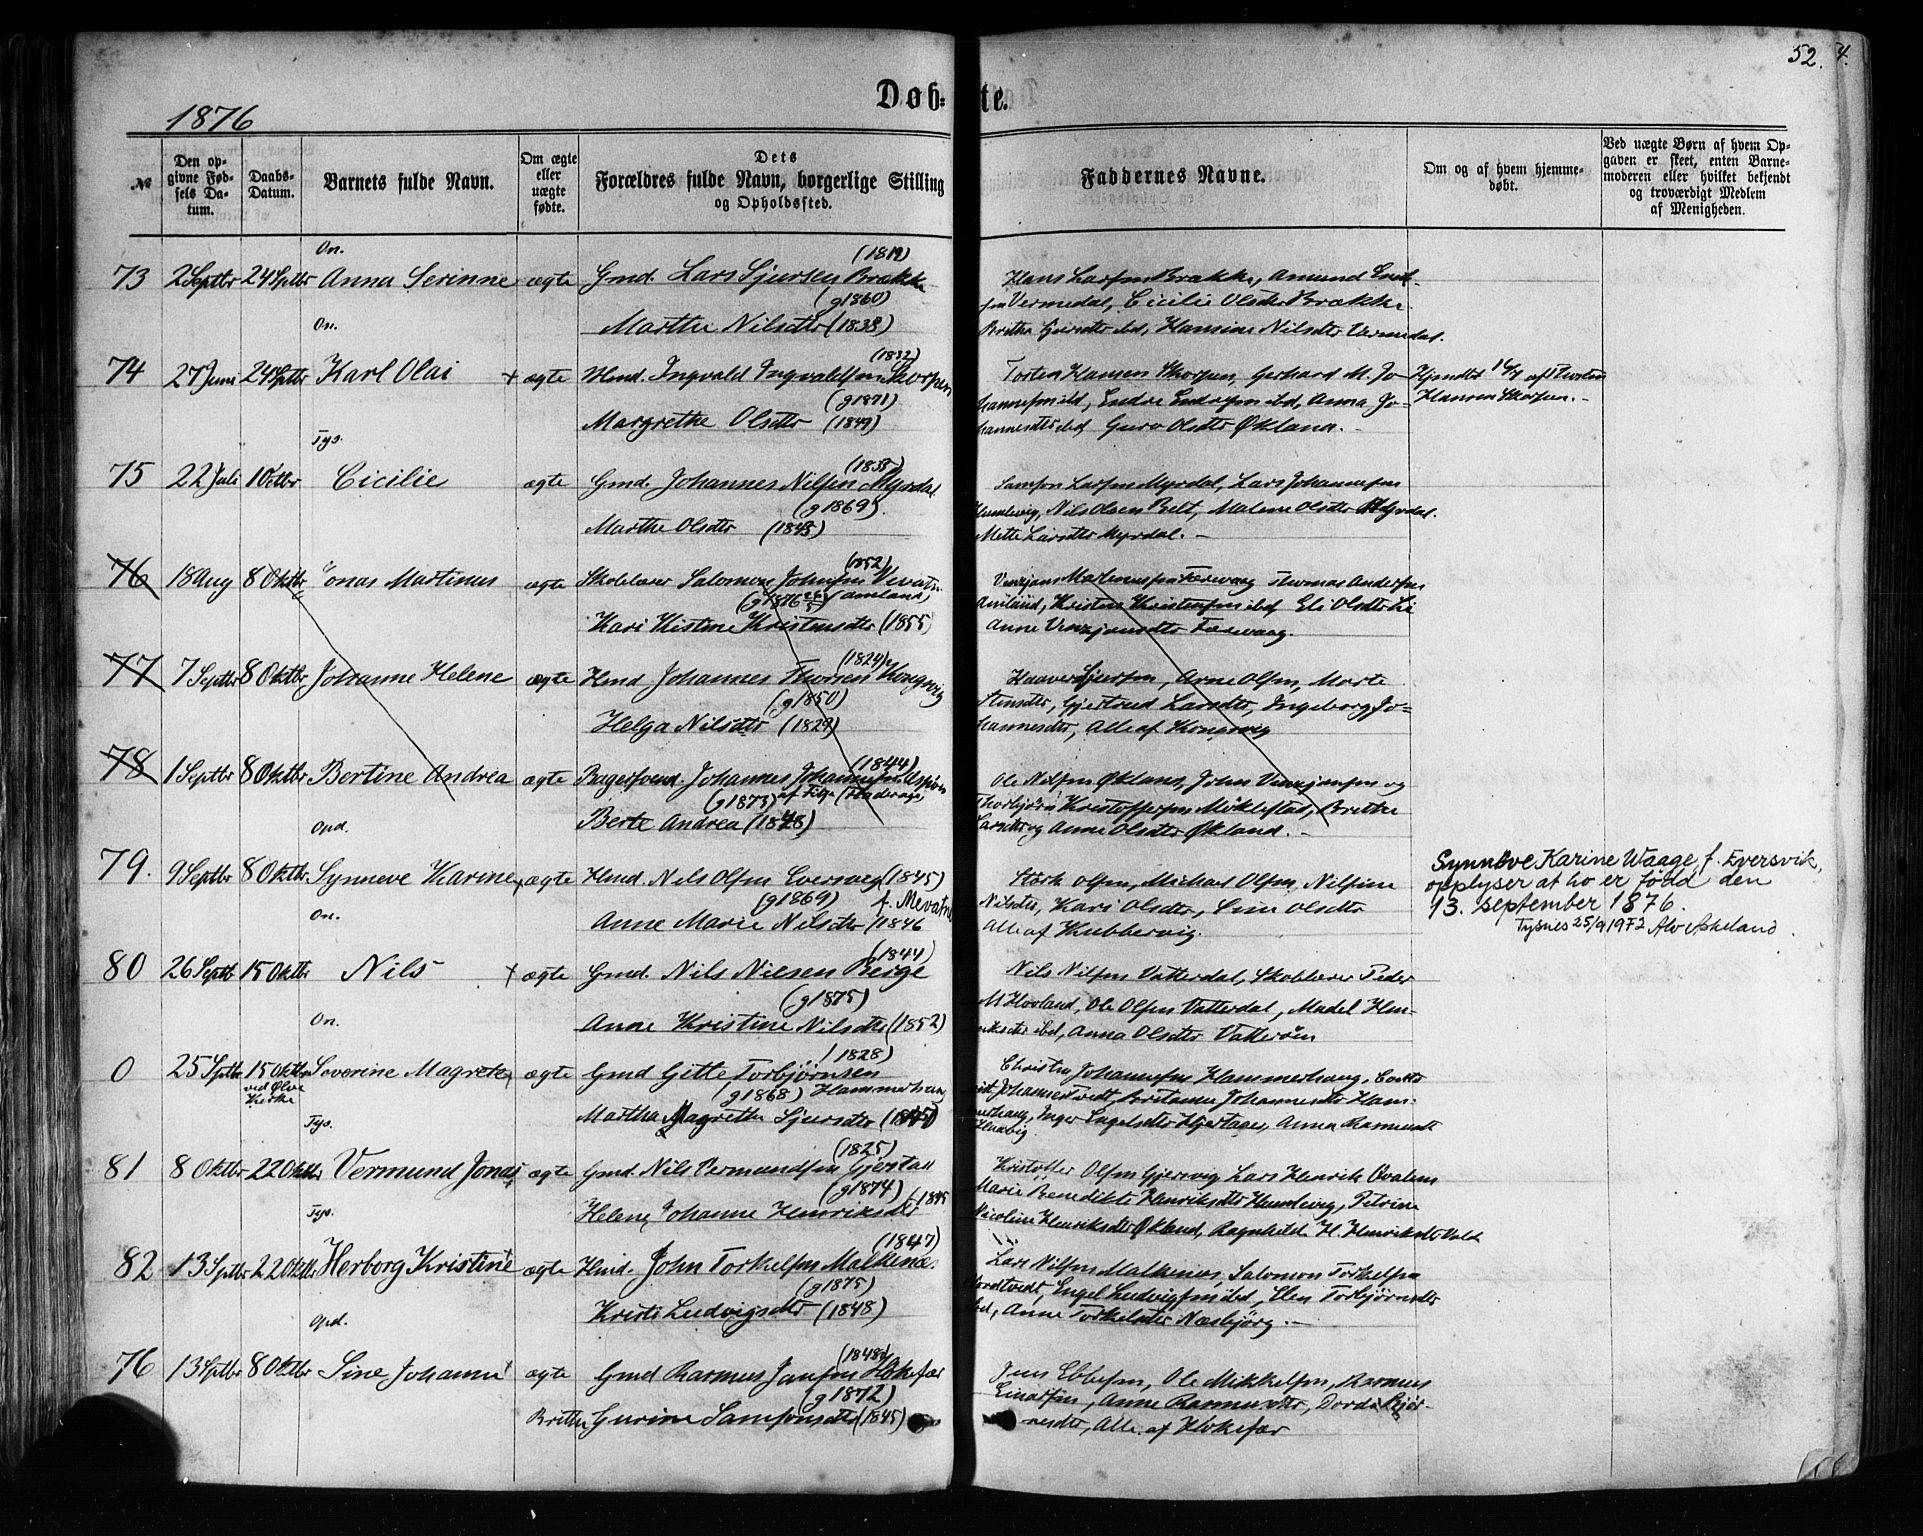 52. 4.
Døb-te.
1876
№
Den opgivne Fødsels Datum.
Daabs-Datum.
Barnets fulde Navn.
Om ægte eller uægte fødte.
Dets Forældres fulde Navn, borgerlige Stilling og Opholdssted.
Faddernes Navne.
Om og af hvem hjemmedøbt.
Ved uægte Børn af hvem Opgaven er skeet, enten Barnemoderen eller hvilket bekjendt og troværdigt Medlem af Menigheden.
On.
73 2 Septbr 24 Septbr Anna Serinne ægte Gmd. Lars Sjursen Brække (1819)
(g 1860)
Marthe Nilsdtr (1833)
Hans Larsen Brække, Amund
Vermedal, Cicilie Olsdtr Brække
Britha Sjursdtr ibd, Hansine Nilsdtr Vermedal.
On.
74 27 Juni 24 Septbr Karl Olai + ægte Hmd. Ingvald Ingvaldsen Skorpen (1832)
(g 1871)
Margrethe Olsdtr (1849)
Torsten Hansen Skorpen, Gerhard M. Jo-
hannesen ibd, Endre Endresen ibd, Anna Jo-
hannesdtr ibd Guro Olsdtr Økland. -
Hjemdbt 16/7 af Torsten
Hansen Skorpen. -
Tys.
75 22 Juli 1 Octbr Cicilie ægte Gmd. Johannes Nilsen Myrdal (1835)
(g 1869)
Marthe Olsdtr (1843)
Samson Larsen Myrdal, Lars Johannesen
Humlevig, Nils Olsen Belt, Malene Olsdtr Myrdal.
Mette Larsdtr Myrdal. -
76 18 Aug 8 Oktbr Jonas Martinus ægte Skolelærer Salomon Johnsen Mevatn (1852)
(g 1876 26/5) Aamland,
Kari Kistine Kristensdtr (1855)
Venzjans Martinussen Færevaag Thomas Andersen
Amland, Kristen Kristensen ibd Eli Olsdtr Li
Anne Venzjansdtr Færevaag.
77 7 Septbr 8 Oktbr Johanne Helene ægte Hmd Johannes Thorsen Kongsvig (1824)
(g 1850)
Helga Nilsdtr (1829)
Haaver Sjursen, Arne Olsen, Marte
Stensdtr, Gjertrud Larsdtr, Ingeborg Jo-
hannesdtr, Alle af Kongsvig
78 1 Septbr 8 Oktbr Bertine Andrea ægte Bagersvend. Johannes Johannesen Espevik (1844)
(g 1873)
Berte Andrea (1848)
Ole Nilsen Økland, John Venzjansen og
Thorbjørn Kristoffersen Møklestad, Brithe
Larsdtr og Anne Olsdtr Økland. -
Opd.
79. 9 Septbr 8 Oktbr Synneve Karine + ægte Hmd. Nils Olsen Eversvig (1845)
(g 1869) f. Mevatn
Anne Marie Nilsdtr (1846
Størk Olsen, Michael Olsen, Nilsine
Nilsdtr, Kari Olsdtr, Sine Olsdtr
Alle af Kubbervig.
Synnøve Karine Waage, f. Eversvik,
opplyser at ho er fødd den
13. september 1876.
Tysnes 25/9 1972 Alv Askeland.
On.
80 26 Septb 15 Oktbr Nils + ægte Gmd. Nils Nilsen Berge (1844)
(g 1875)
Anne Kristine Nilsdtr (1852)
Nils Nilsen Vatterdal, Skolelærer Peder
M Hovland, Ole Olsen Vatterdal, Madel Hen-
riksdtr ibd, Anna Olsdtr Vatterøen
On.
0 25 Septbr 15 Oktbr Severine Magrete ægte Gmd Gitle Torbjørnsen (1828)
ved Ølve Kirke
(g 1868) Hammerhaug
Martha Magrethe Sjursdtr
Christen Johannesen Hammerhaug,
Johannes Tvedt, Britanne Johannesdtr Ham-
merhaug, Inger Engelsdtr Hjertager, Anna Rasmusdt
Tys.
81 8 Oktbr 22 Oktbr Vermund Jonas ægte Gmd. Nils Vermundsen Gjerstad (1825)
(g 1874)
Helene Johanne Henriksdtr (1845
Kristoffer Olsen Gjersvig Lars Henrik Ovalsen
Marie Benedikte Henriksdtr Humlevig, Petrine
Nicoline Henriksdtr Økland, Ragnhild H. Henriksdtr Vold
Tys.
82 13 Septbr 22 Oktbr Herborg Kristine + ægte Hmd. John Torkelsen Malkenæs (1847)
(g 1875)
Kristi Ludvigsdtr (1848)
Lars Nilsen Malkenes, Salomon Torkelsen
Nordtvedt, Engel Ludvigsen ibd, Elen Torbjørnsdtr
ibd, Anne Torkelsdtr Næsbjørg. -
Opd.
76 13 Septbr 8 Oktbr Sine Johanne + ægte Gmd Rasmus Jansen Hokefær (1848)
(g 1872)
Brithe Gurine Samsonsdtr (1845)
Jens Ebbesen, Ole Mikkelsen, Rasmus
Einarsen, Anne Rasmusdtr, Dorde Bjør-
nesdtr, Alle af Hokefær